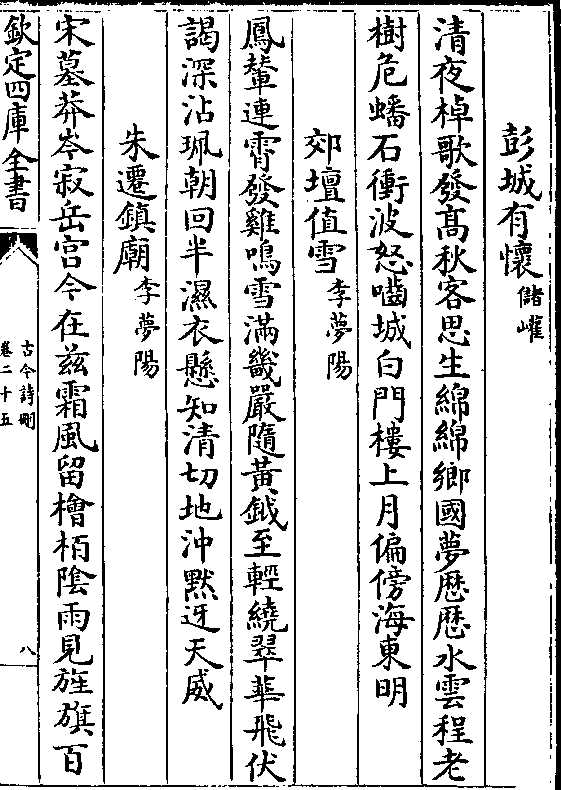 彭城有懷儲巏
清夜棹歌發髙秋客思生綿綿鄉國夢歴歴水雲程老
樹危蟠石衝波怒嚙城白門樓上月偏傍海東明
郊壇值雪李夢陽
鳳輦連霄發雞鳴雪滿畿嚴隨黃鉞至輕繞翠華飛伏
謁深沾珮朝回半濕衣懸知清切地沖默迓天威
朱遷鎮廟李夢陽
宋墓莽岑寂岳宫今在兹霜風留檜栢隂雨見旌旗百
欽定四庫全書
古今詩刪
卷二十五
八